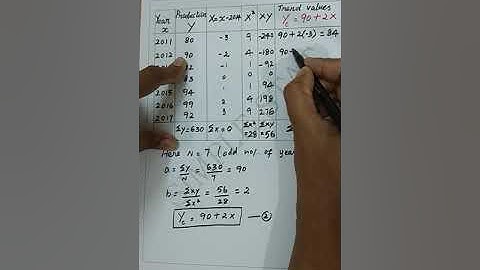 Year x Production Y X=x-2014 X² XY Trend values Yc = 90+2X
2011 80 -3 9 -240 90+2(-3) = 84
2012 90 -2 4 -180 90+
92 -1 1 -92
83 0 0 0
2015 94 1 94
2016 99 2 4 198
2017 92 3 9 276
Σy=630 Σx=0 Σx²=28 Σxy=56
Here N = 7 (odd no. of yea
a = Σy/N = 630/7 = 90
b = Σxy/Σx² = 56/28 = 2
Yc = 90+2X